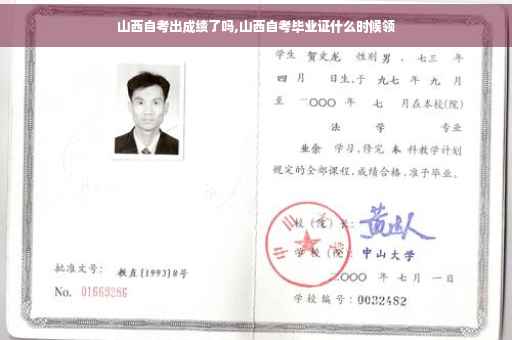 山西自考出成绩了吗,山西自考毕业证什么时候领
学生 贺文龙 性别 男 、七三 年
四 月 日生,于 九七 年 九 月
至 二〇〇〇 年 七 月在本校(院)
法 学 专业
业余 学习,修完 本 科教学计划
规定的全部课程,成绩合格,准予毕业。
校(院)长:
学校(院): 中山大学
二〇〇〇 年 七 月 一 日
批准文号: 教直[1993]8号
No. 01663286
学校编号: 0032482